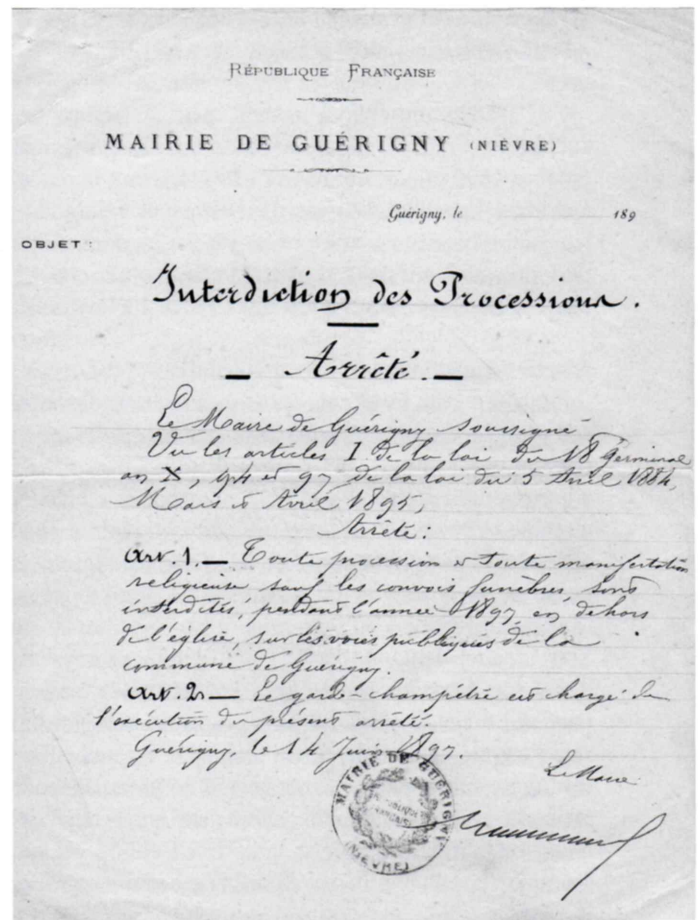 RÉPUBLIQUE FRANÇAISE
MAIRIE DE GUÉRIGNY (NIÈVRE)
Guérigny, le 189
OBJET
Interdiction des Processions.
Arrêté.
Le Maire de Guérigny soussigné
Vu les articles I de la loi du 18 Germinal
an X, 94 et 97 de la loi du 5 Avril 1884,
Mars et Avril 1895,
Arrête:
Art. 1. — Toute procession et toute manifestation
religieuse sauf les convois funèbres, sont
interdites, pendant l'année 1897, en dehors
de l'église, sur les voies publiques de la
commune de Guérigny.
Art. 2. — Le garde-champêtre est chargé de
l'exécution du présent arrêté.
Guérigny, le 14 Juin 1897.
Le Maire
MAIRIE DE GUÉRIGNY
(NIÈVRE)